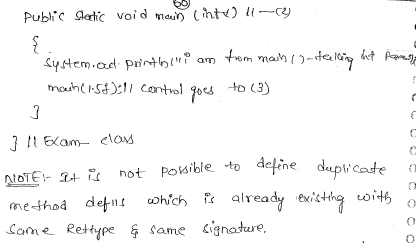 60
public static void main (int x) // —(2)
{
System.out.println("i am from main()-taking int
main(1.5f); // control goes to (3)
}
} // Exam class
NOTE:- It is not possible to define duplicate
method def's which is already existing with
Same Rettype & same signature.